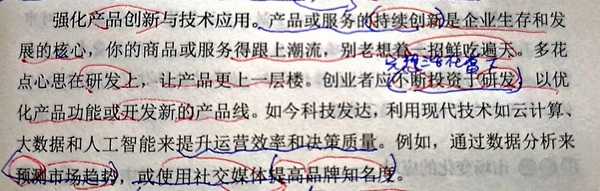 强化产品创新与技术应用。产品或服务的持续创新是企业生存和发
展的核心，你的商品或服务得跟上潮流，别老想着一招鲜吃遍天。多花
点心思在研发上，让产品更上一层楼。创业者应不断投资于研发，以优
化产品功能或开发新的产品线。如今科技发达，利用现代技术如云计算、
大数据和人工智能来提升运营效率和决策质量。例如，通过数据分析来
预测市场趋势，或使用社交媒体提高品牌知名度。